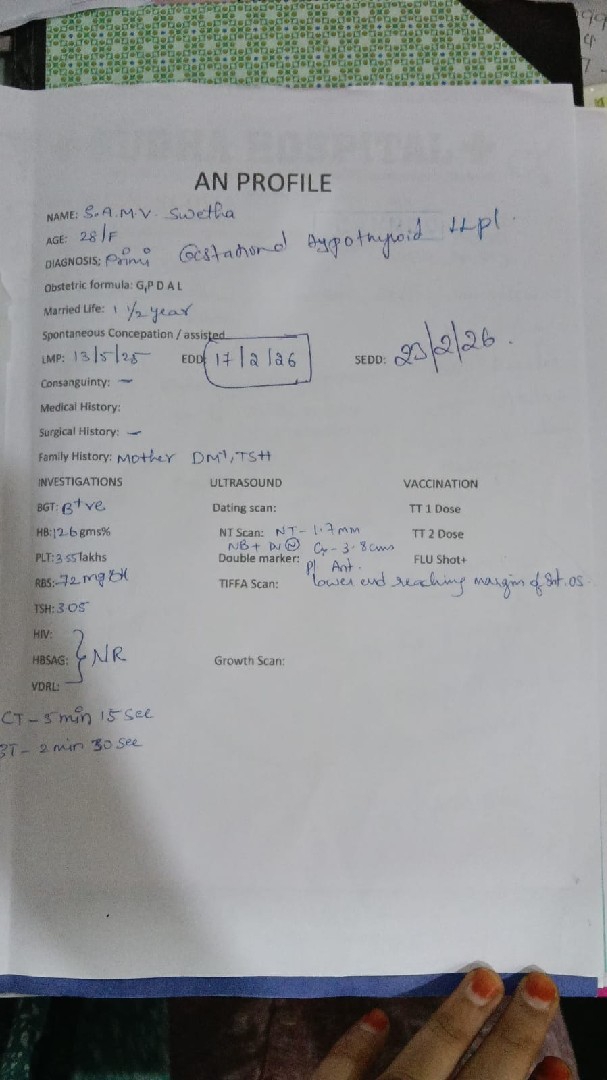 AN PROFILE
NAME: S.A.M.V. Swetha
AGE: 28/F
DIAGNOSIS: Primi Gestational Hypothyroid LLpl.
Obstetric formula: G,P D A L
Married Life: 1 1/2 year
Spontaneous Concepation / assisted
LMP: 13/5/25 EDD 17/2/26 SEDD: 23/2/26.
Consanguinty: –
Medical History:
Surgical History: –
Family History: Mother DM, TSH
INVESTIGATIONS ULTRASOUND VACCINATION
BGT: B+ve Dating scan: TT 1 Dose
HB: 12.6 gms% NT Scan: NT- 1.7mm TT 2 Dose
NB+ DV (N) Cx - 3.8 cms
PLT: 3.55 lakhs Double marker: Pl Ant. FLU Shot+
RBS:- 72 mg TIFFA Scan: lower end reaching margin of Int.os.
TSH: 3.05
HIV:
HBSAG: } NR Growth Scan:
VDRL:
CT - 5 min 15 sec
BT - 2 min 30 sec